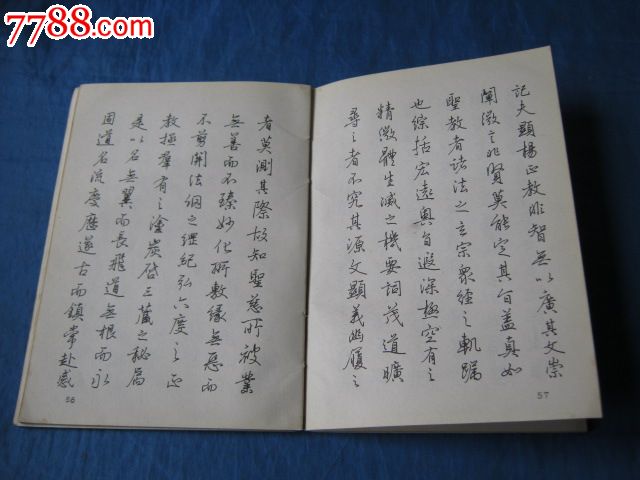 7788.com
记夫顯揚正教非智無以廣其文崇
闡微言非賢莫能定其旨蓋真如
聖教者諸法之玄宗衆經之軌躅
也綜括宏遠奥旨遐深極空有之
精微體生滅之機要詞茂道曠
尋之者不究其源文顯義幽履之
57
者莫測其際故知聖慈所被業
無善而不臻妙化所敷緣無惡而
不剪開法網之綱紀弘六度之正
教拯羣有之塗炭啓三藏之秘扃
是以名無翼而長飛道無根而永
固道名流慶歷遂古而鎮常赴感
58